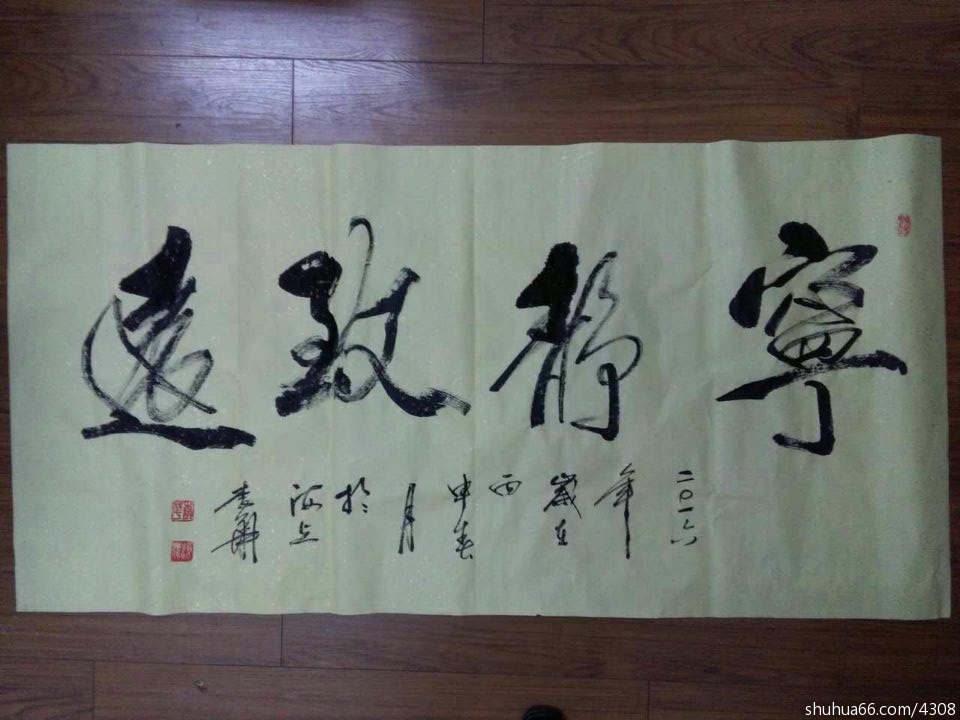 寧靜致遠
二〇一六
年
歲在
丙
申春
月
於
海上
shuhua66.com/4308